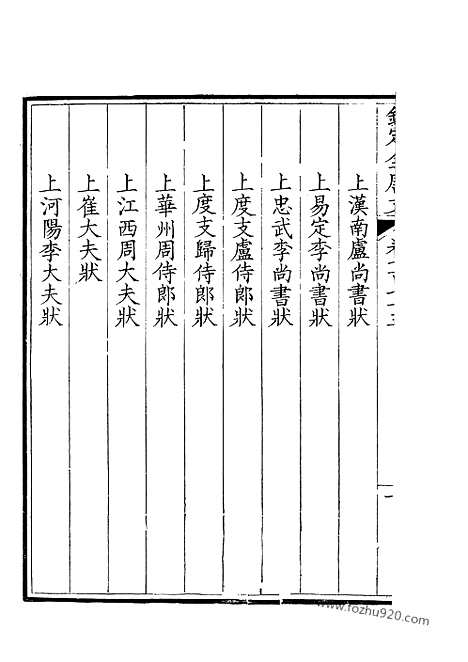 上漢南盧尚書狀
上易定李尚書狀
上忠武李尚書狀
上度支盧侍郎狀
上度支歸侍郎狀
上華州周侍郎狀
上江西周大夫狀
上崔大夫狀
上河陽李大夫狀
www.fozhu920.com